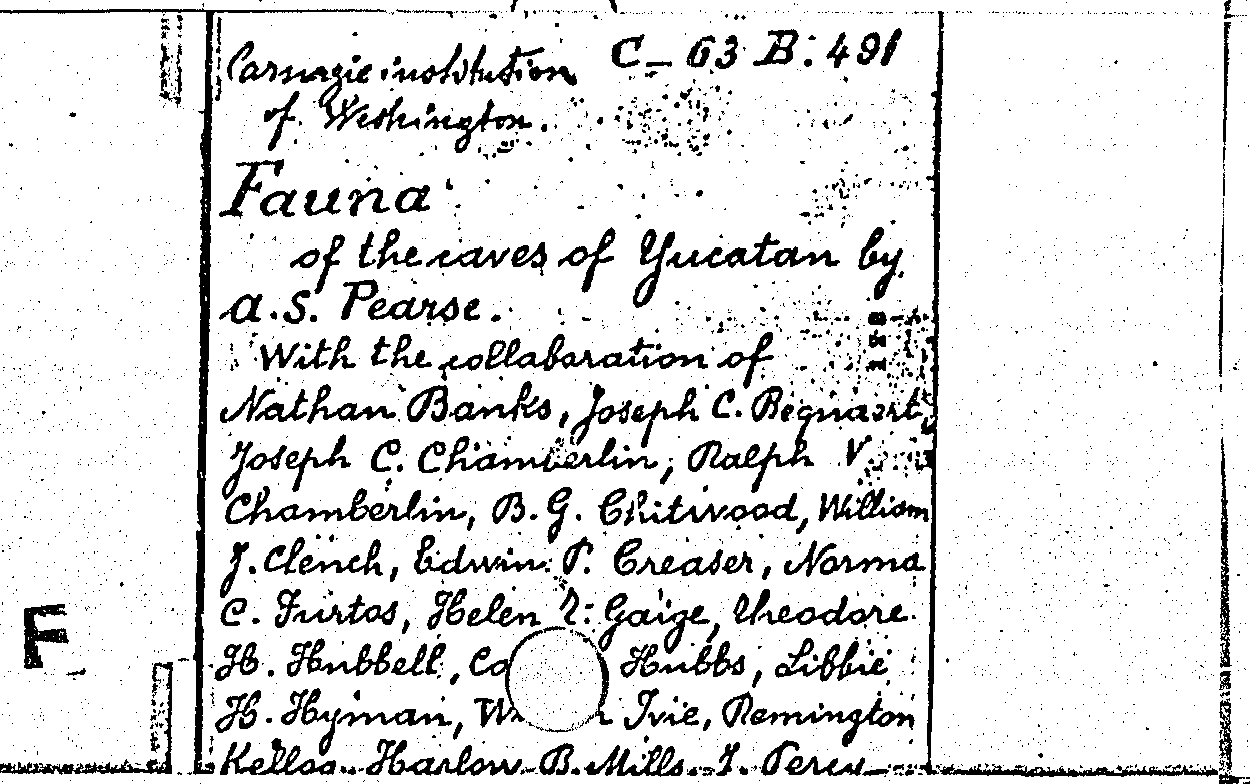 Carnegie institution C-63 B: 491
of Weshington.
Fauna
of the caves of Yucatan by
A.S. Pearse.
With the collaboration of
Nathan Banks, Joseph C. Bequaert,
Joseph C. Chamberlin, Ralph V.
Chamberlin, B.G. Chitwood, William
J. Clench, Edwin P. Creaser, Norma
C. Furtos, Helen T. Gaige, Theodore
H. Hubbell, Co Hubbs, Libbie
F
H. Hyman, W Ivie, Remington
Kellog, Harlow B. Mills, J. Percy